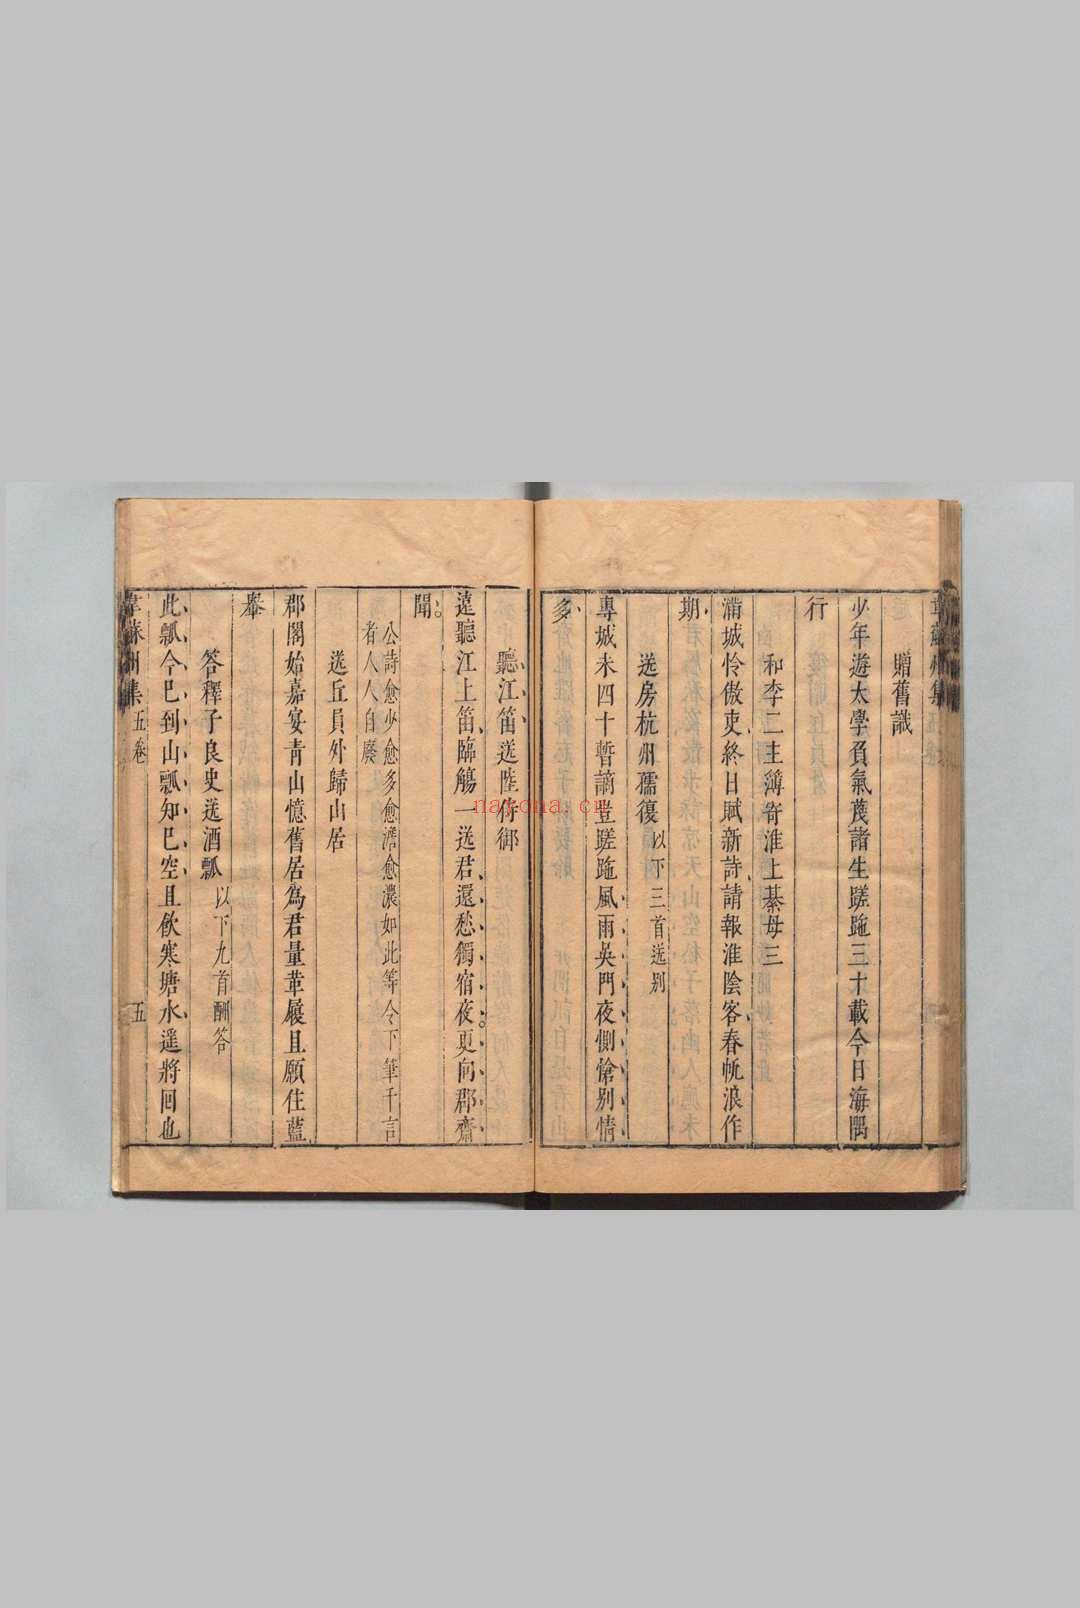 贈舊識
少年遊太學負氣蔑諸生蹉跎三十載今日海隅
行
和李二主簿寄淮上綦毋三
滿城怜傲吏終日賦新詩請報淮陰客春帆浪作
期
送房杭州孺復 以下三首送别
專城未四十暫謫豈蹉跎風雨吳門夜惻愴别情
多
聽江笛送陸侍御
遠聽江上笛臨觴一送君還愁獨宿夜更向郡齋
聞
公詩愈少愈多愈澹愈濃如此等令下筆千言
者人人自廢
送丘員外歸山居
郡閣始嘉宴青山憶舊居為君量革履且願住藍
舉
答釋子良史送酒瓢 以下九首酬答
此瓢今已到山瓢知已空且飲寒塘水遥將回也
韋蘇州集 五卷 五
nayona.cn